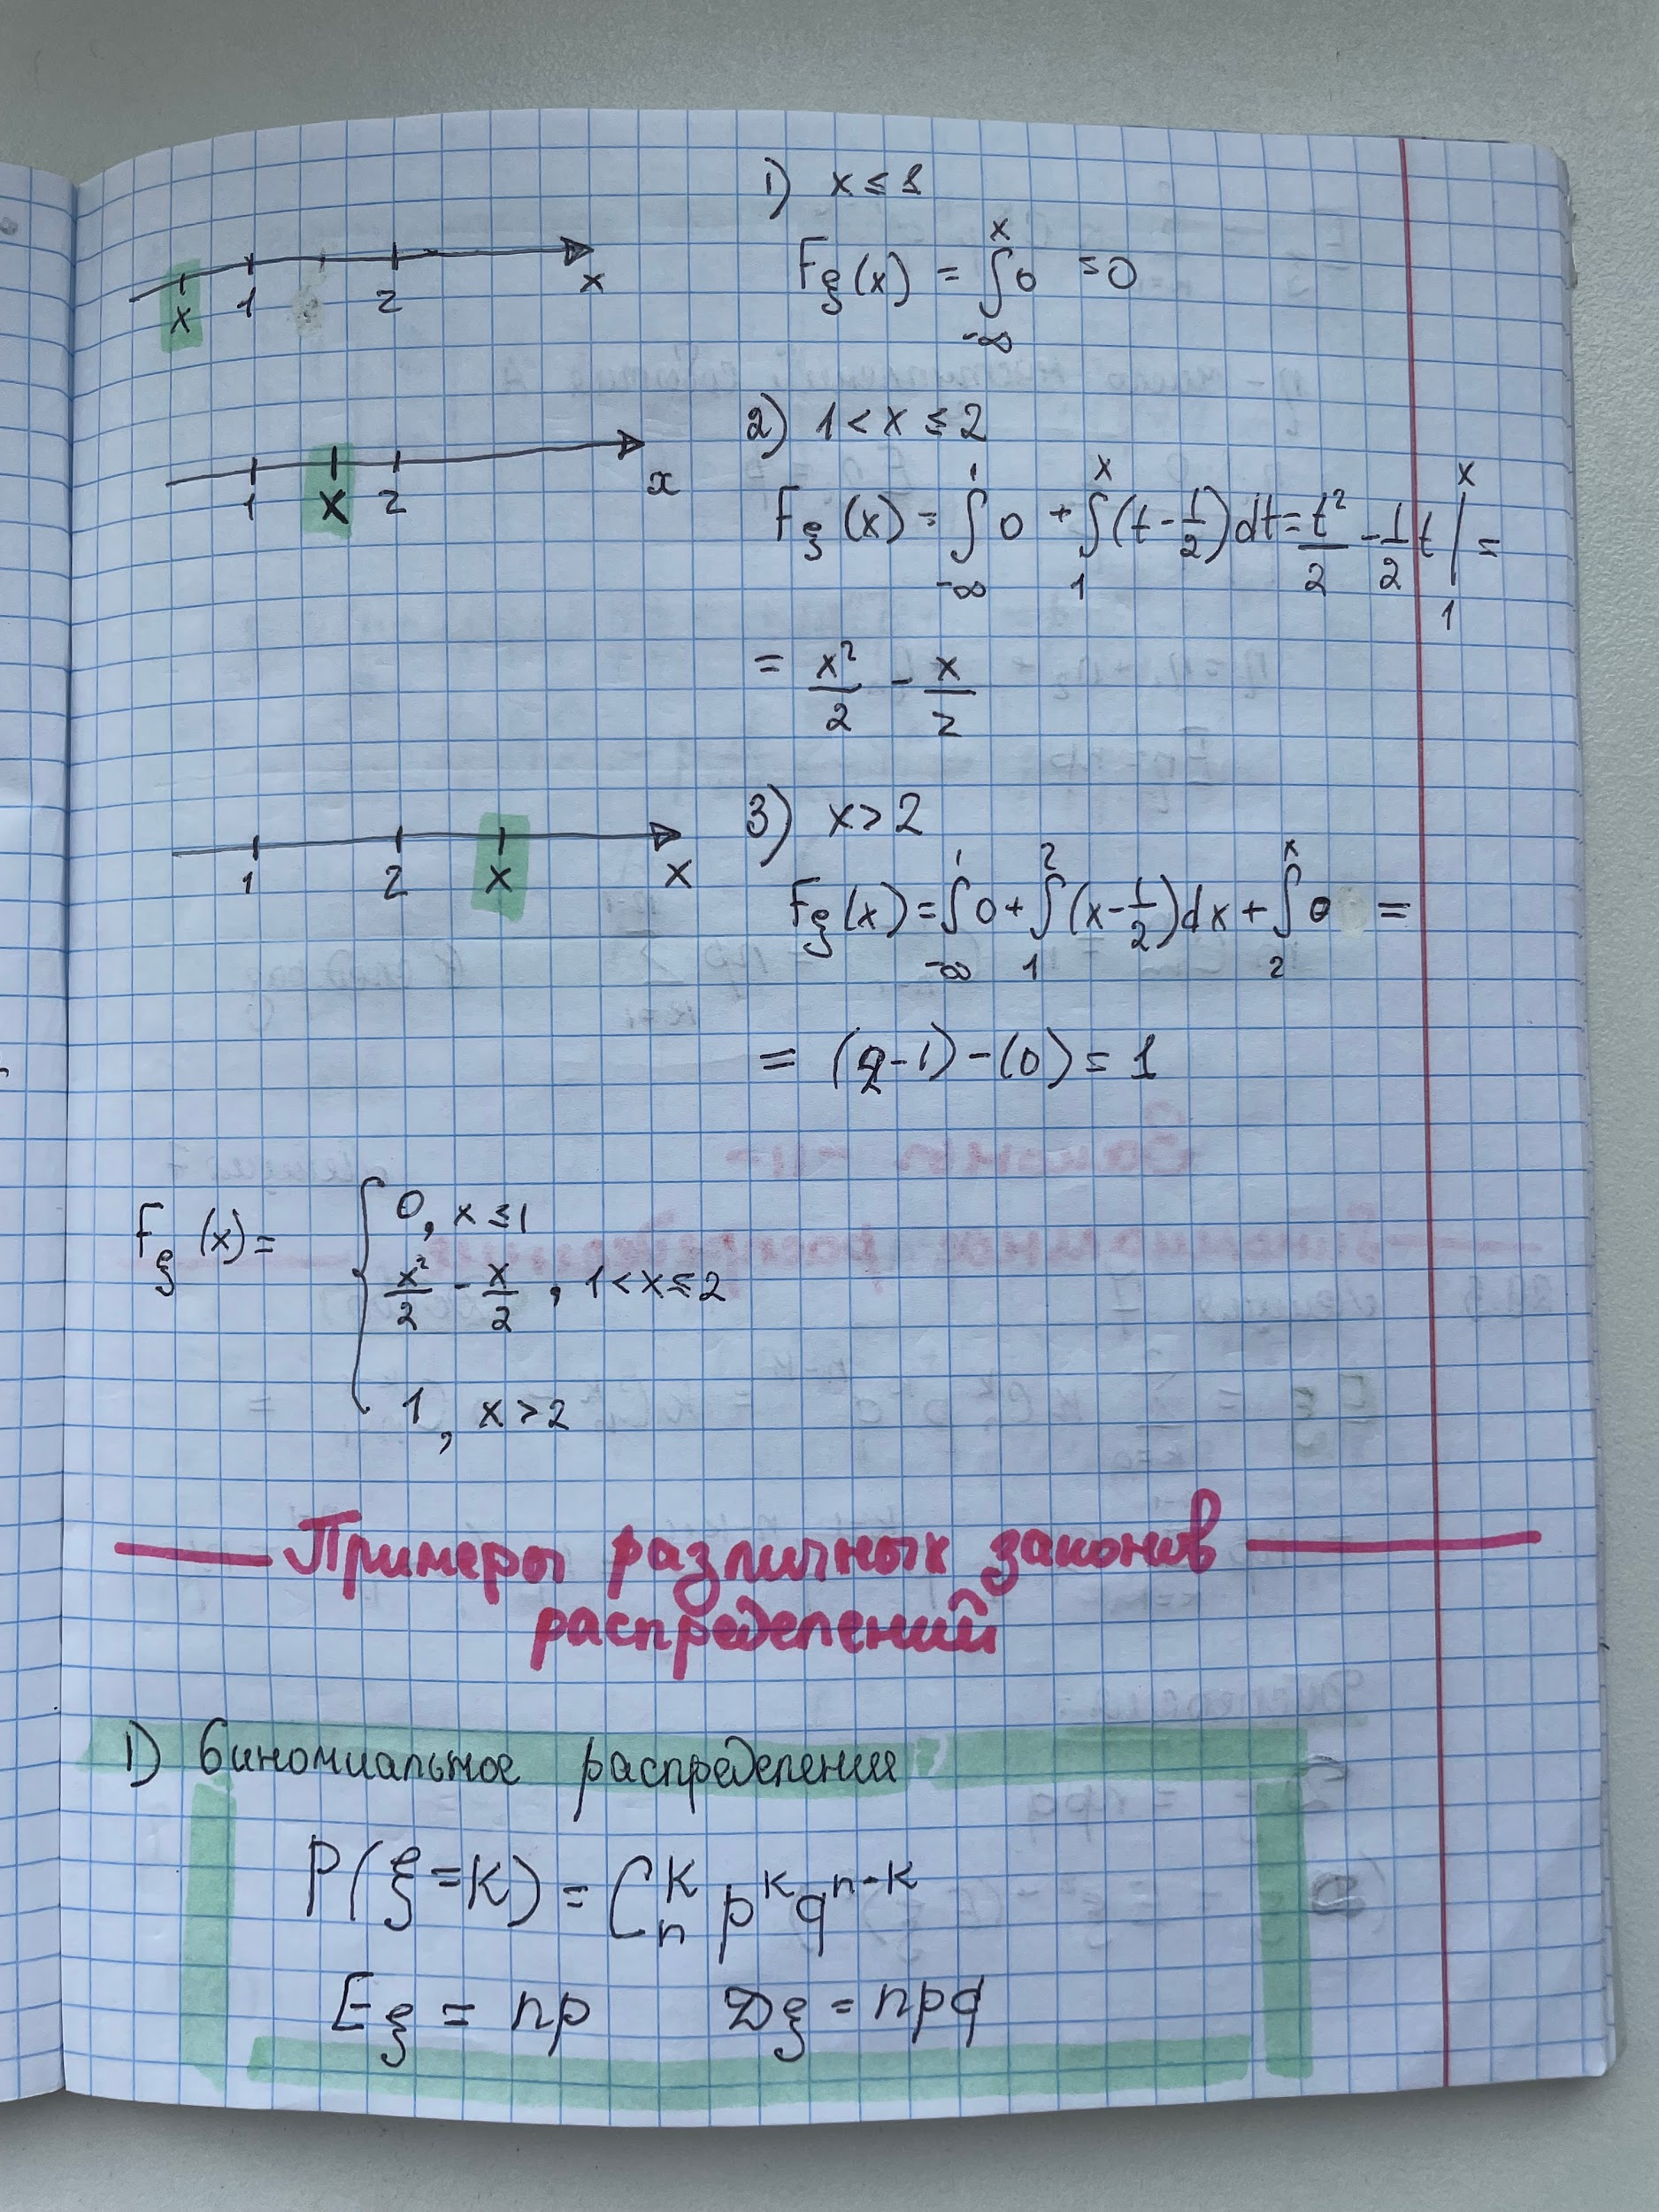 1) x ≤ 1
x 1 2 x
F_ξ(x) = ∫_{-∞}^{x} 0 = 0
2) 1 < x ≤ 2
1 x 2 x
F_ξ(x) = ∫_{-∞}^{1} 0 + ∫_{1}^{x} (t - 1/2) dt = t²/2 - 1/2 t |_{1}^{x} =
= x²/2 - x/2
3) x > 2
1 2 x x
F_ξ(x) = ∫_{-∞}^{1} 0 + ∫_{1}^{2} (x - 1/2) dx + ∫_{2}^{x} 0 =
= (2-1) - (0) = 1
F_ξ(x) = { 0, x ≤ 1
x²/2 - x/2, 1 < x ≤ 2
1, x > 2
Примеры различных законов
распределений
1) биномиальное распределение
P(ξ=k) = C_n^k p^k q^{n-k}
Eξ = np Dξ = npq